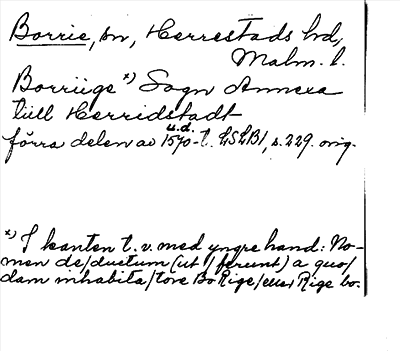 Borrie, sn, Herrestads hd,
Malm. l.
Borriige *) Sogn Annexa
till Herridstadt
u.d.
förra delen av 1570-t. LSLB1, s. 229. orig.
*) I kanten t. v. med yngre hand: No-
men de/ductum (ut / ferunt) a quo/
dam inhabita/tore Bo Rige/eller Rige bo.